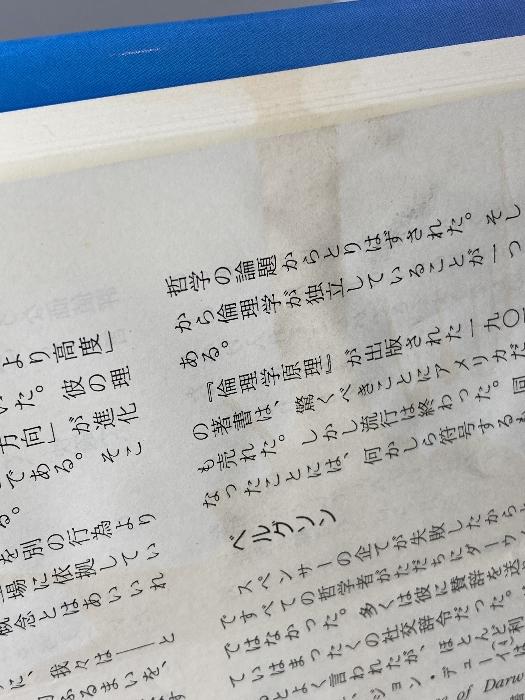 より高度」
た。彼の理
方向」が進化
である。そこ
る。
を別の行為より
場に依拠してい
概念とはあいいれ
に、我々は――と
るまいを、
哲学の論題からとりはずされた。そし
から倫理学が独立していることが一つ
ある。
『倫理学原理』が出版された一九〇
の著書は、驚くべきことにアメリカだ
も売れた。しかし流行は終わった。同
なったことには、何かしら符号する
ベルグソン
スペンサーの企てが失敗したからと
ですべての哲学者がただちにダーウィ
ではなかった。多くは彼に賛辞を送
ていはまったくの社交辞令だった。
とよく言われたが、ほとんど利
ジョン・デューイは
of Darw